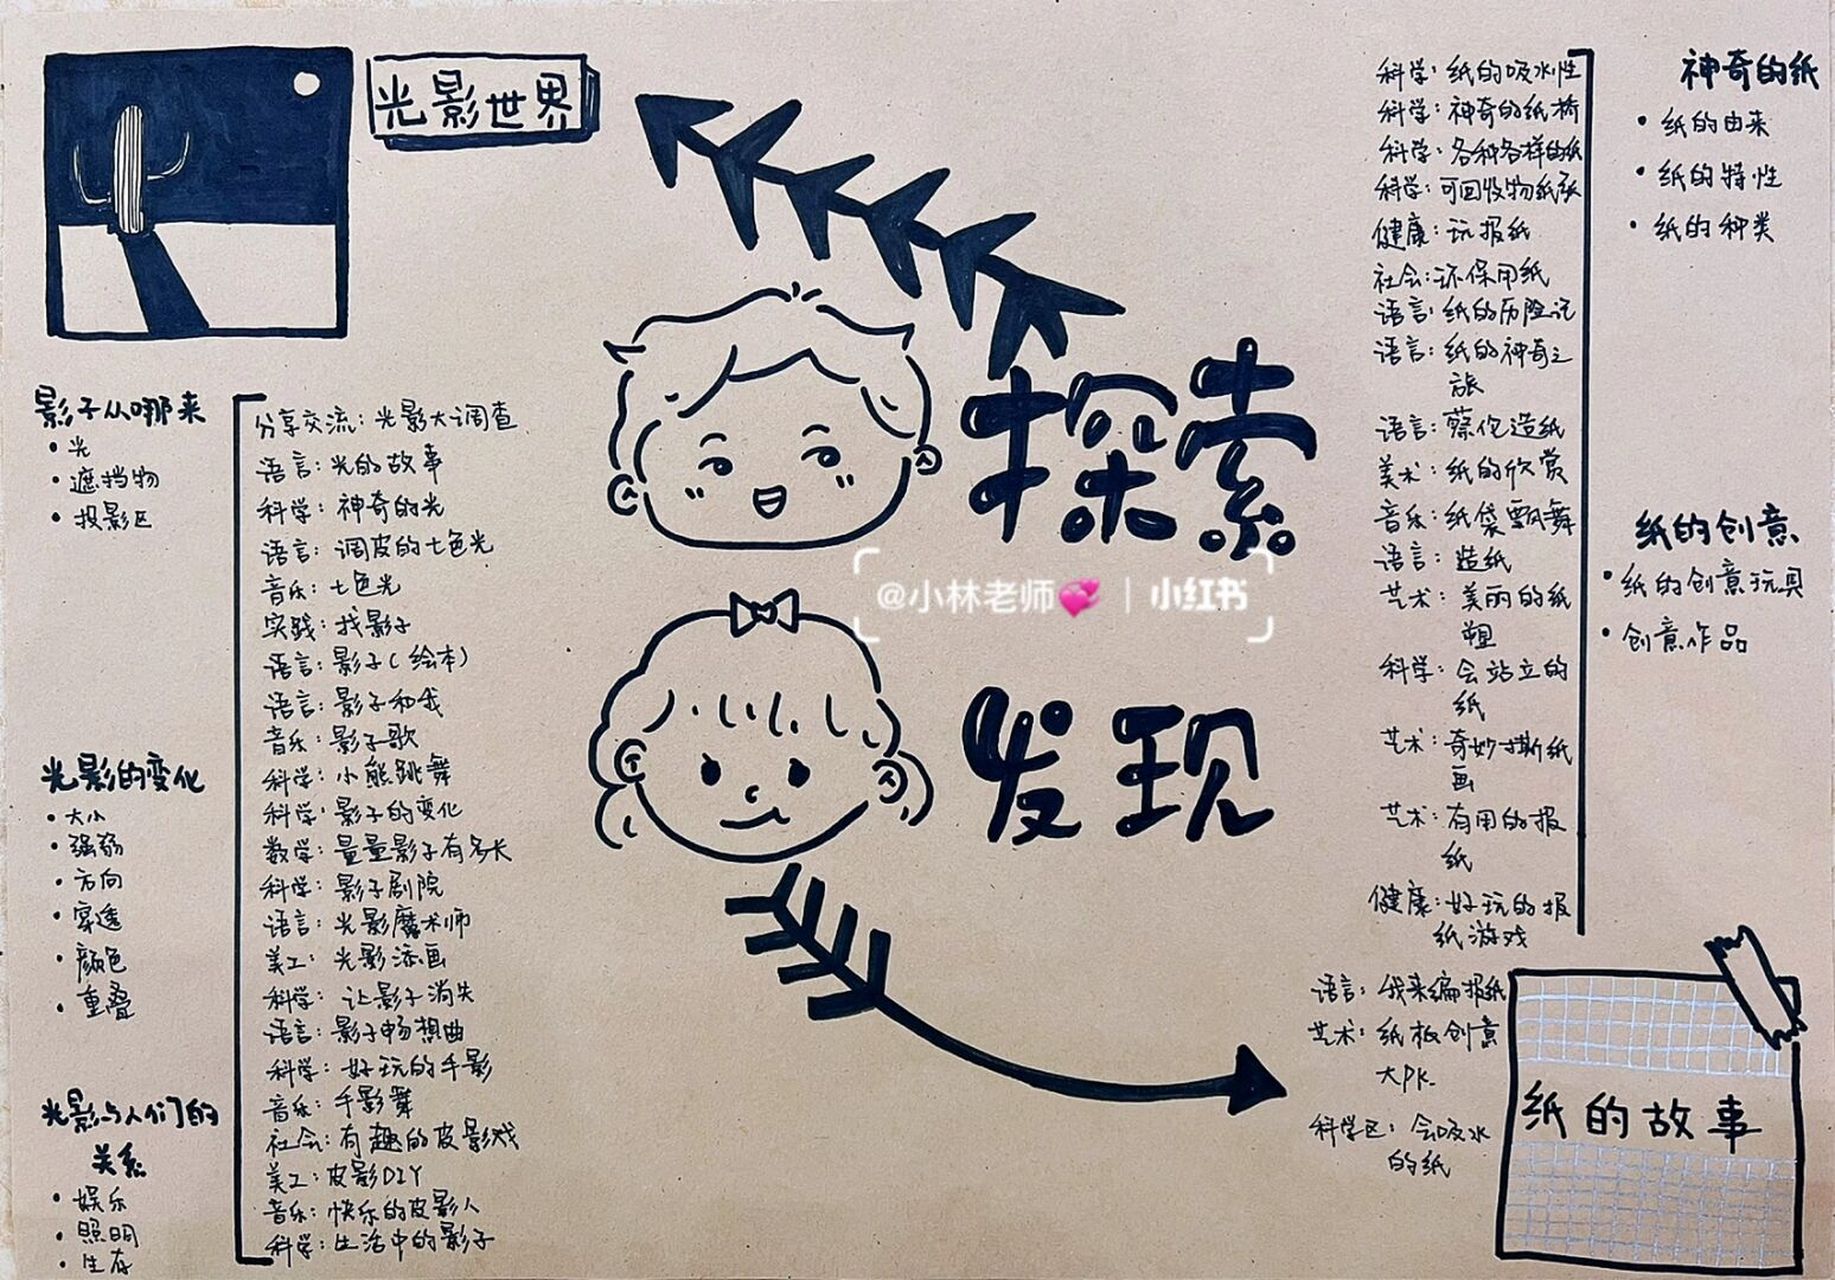 光影世界
影子从哪来
• 光
• 遮挡物
• 投影区
光影的变化
• 大小
• 强弱
• 方向
• 穿透
• 颜色
• 重叠
光影与人们的
关系
• 娱乐
• 照明
• 生存
分享交流：光影大调查
语言：光的故事
科学：神奇的光
语言：调皮的七色光
音乐：七色光
实践：找影子
语言：影子（绘本）
语言：影子和我
音乐：影子歌
科学：小熊跳舞
科学：影子的变化
数学：量量影子有多长
科学：影子剧院
语言：光影魔术师
美工：光影添画
科学：让影子消失
语言：影子畅想曲
科学：好玩的手影
音乐：手影舞
社会：有趣的皮影戏
美工：皮影DIY
音乐：快乐的皮影人
科学：生活中的影子
探索
@小林老师 | 小红书
发现
科学：纸的吸水性
科学：神奇的纸桥
科学：各种各样的纸
科学：可回收物纸张
健康：玩报纸
社会：环保用纸
语言：纸的历险记
语言：纸的神奇之
旅
语言：蔡伦造纸
美术：纸的欣赏
音乐：纸袋飘舞
语言：造纸
艺术：美丽的纸
塑
科学：会站立的
纸
艺术：奇妙撕纸
画
艺术：有用的报
纸
健康：好玩的报
纸游戏
语言：我来编报纸
艺术：纸板创意
大PK
科学区：会吸水
的纸
神奇的纸
• 纸的由来
• 纸的特性
• 纸的种类
纸的创意
• 纸的创意玩具
• 创意作品
纸的故事